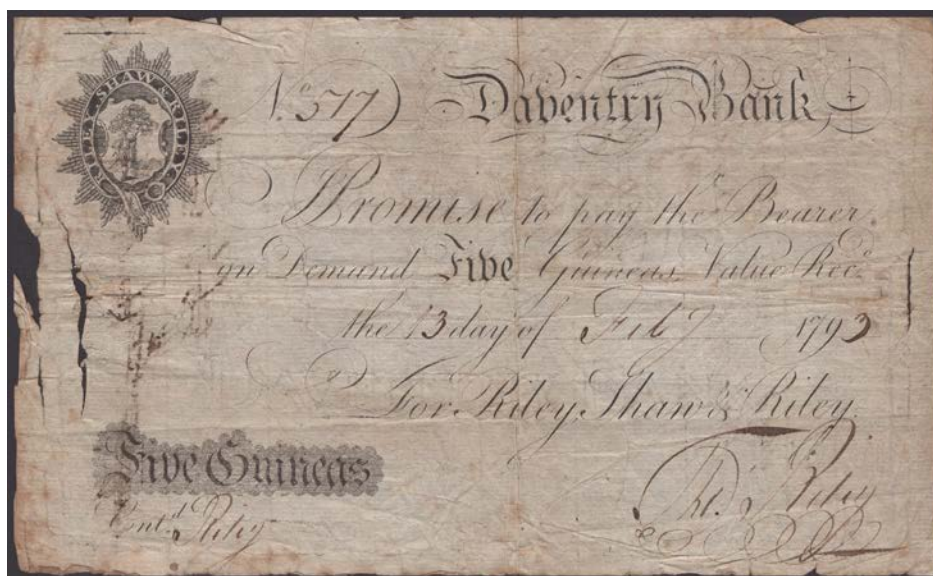 RILEY SHAW & RILEY
No. 517 Daventry Bank
I Promise to pay the Bearer
on Demand Five Guineas Value Recd.
the 13 day of Feby 1793
For Riley, Shaw & Riley
Five Guineas
Entd. Riley
Riley